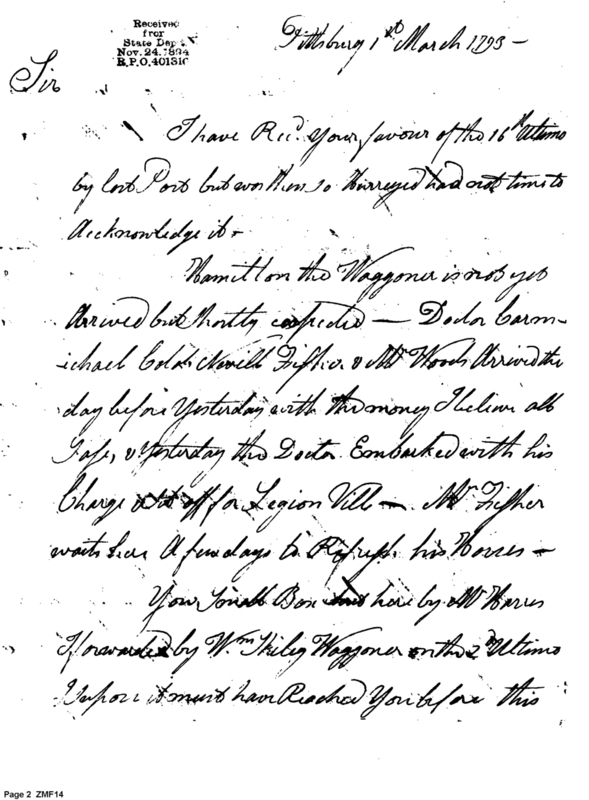 Received
from
State Dept.
Nov. 24. 1894
R.P.O. 401310
Pittsburg 1st March 1793 -
Sir
I have Recd. Your favour of the 16th Ultimo
by last Post but was then so Hurreyed had not time to
Acknowledge it -
Hamilton the Waggoner is not yet
Arrived but Shortly expected — Doctor Carm-
ichael Colo. Nevill Fisher & Mr Woods Arrived the
day before Yesterday with the money I believe all
Safe, & Yesterday the Doctor Embarked with his
Charge off for Legion Vill — Mr Fisher
waits here A few days to Refresh his Horses -
Your Small Box here by Mr Harris
I forwarded by Wm Waggoner on the 2d Ultimo
I supose it must have Reached You before this
Page 2 ZMF14